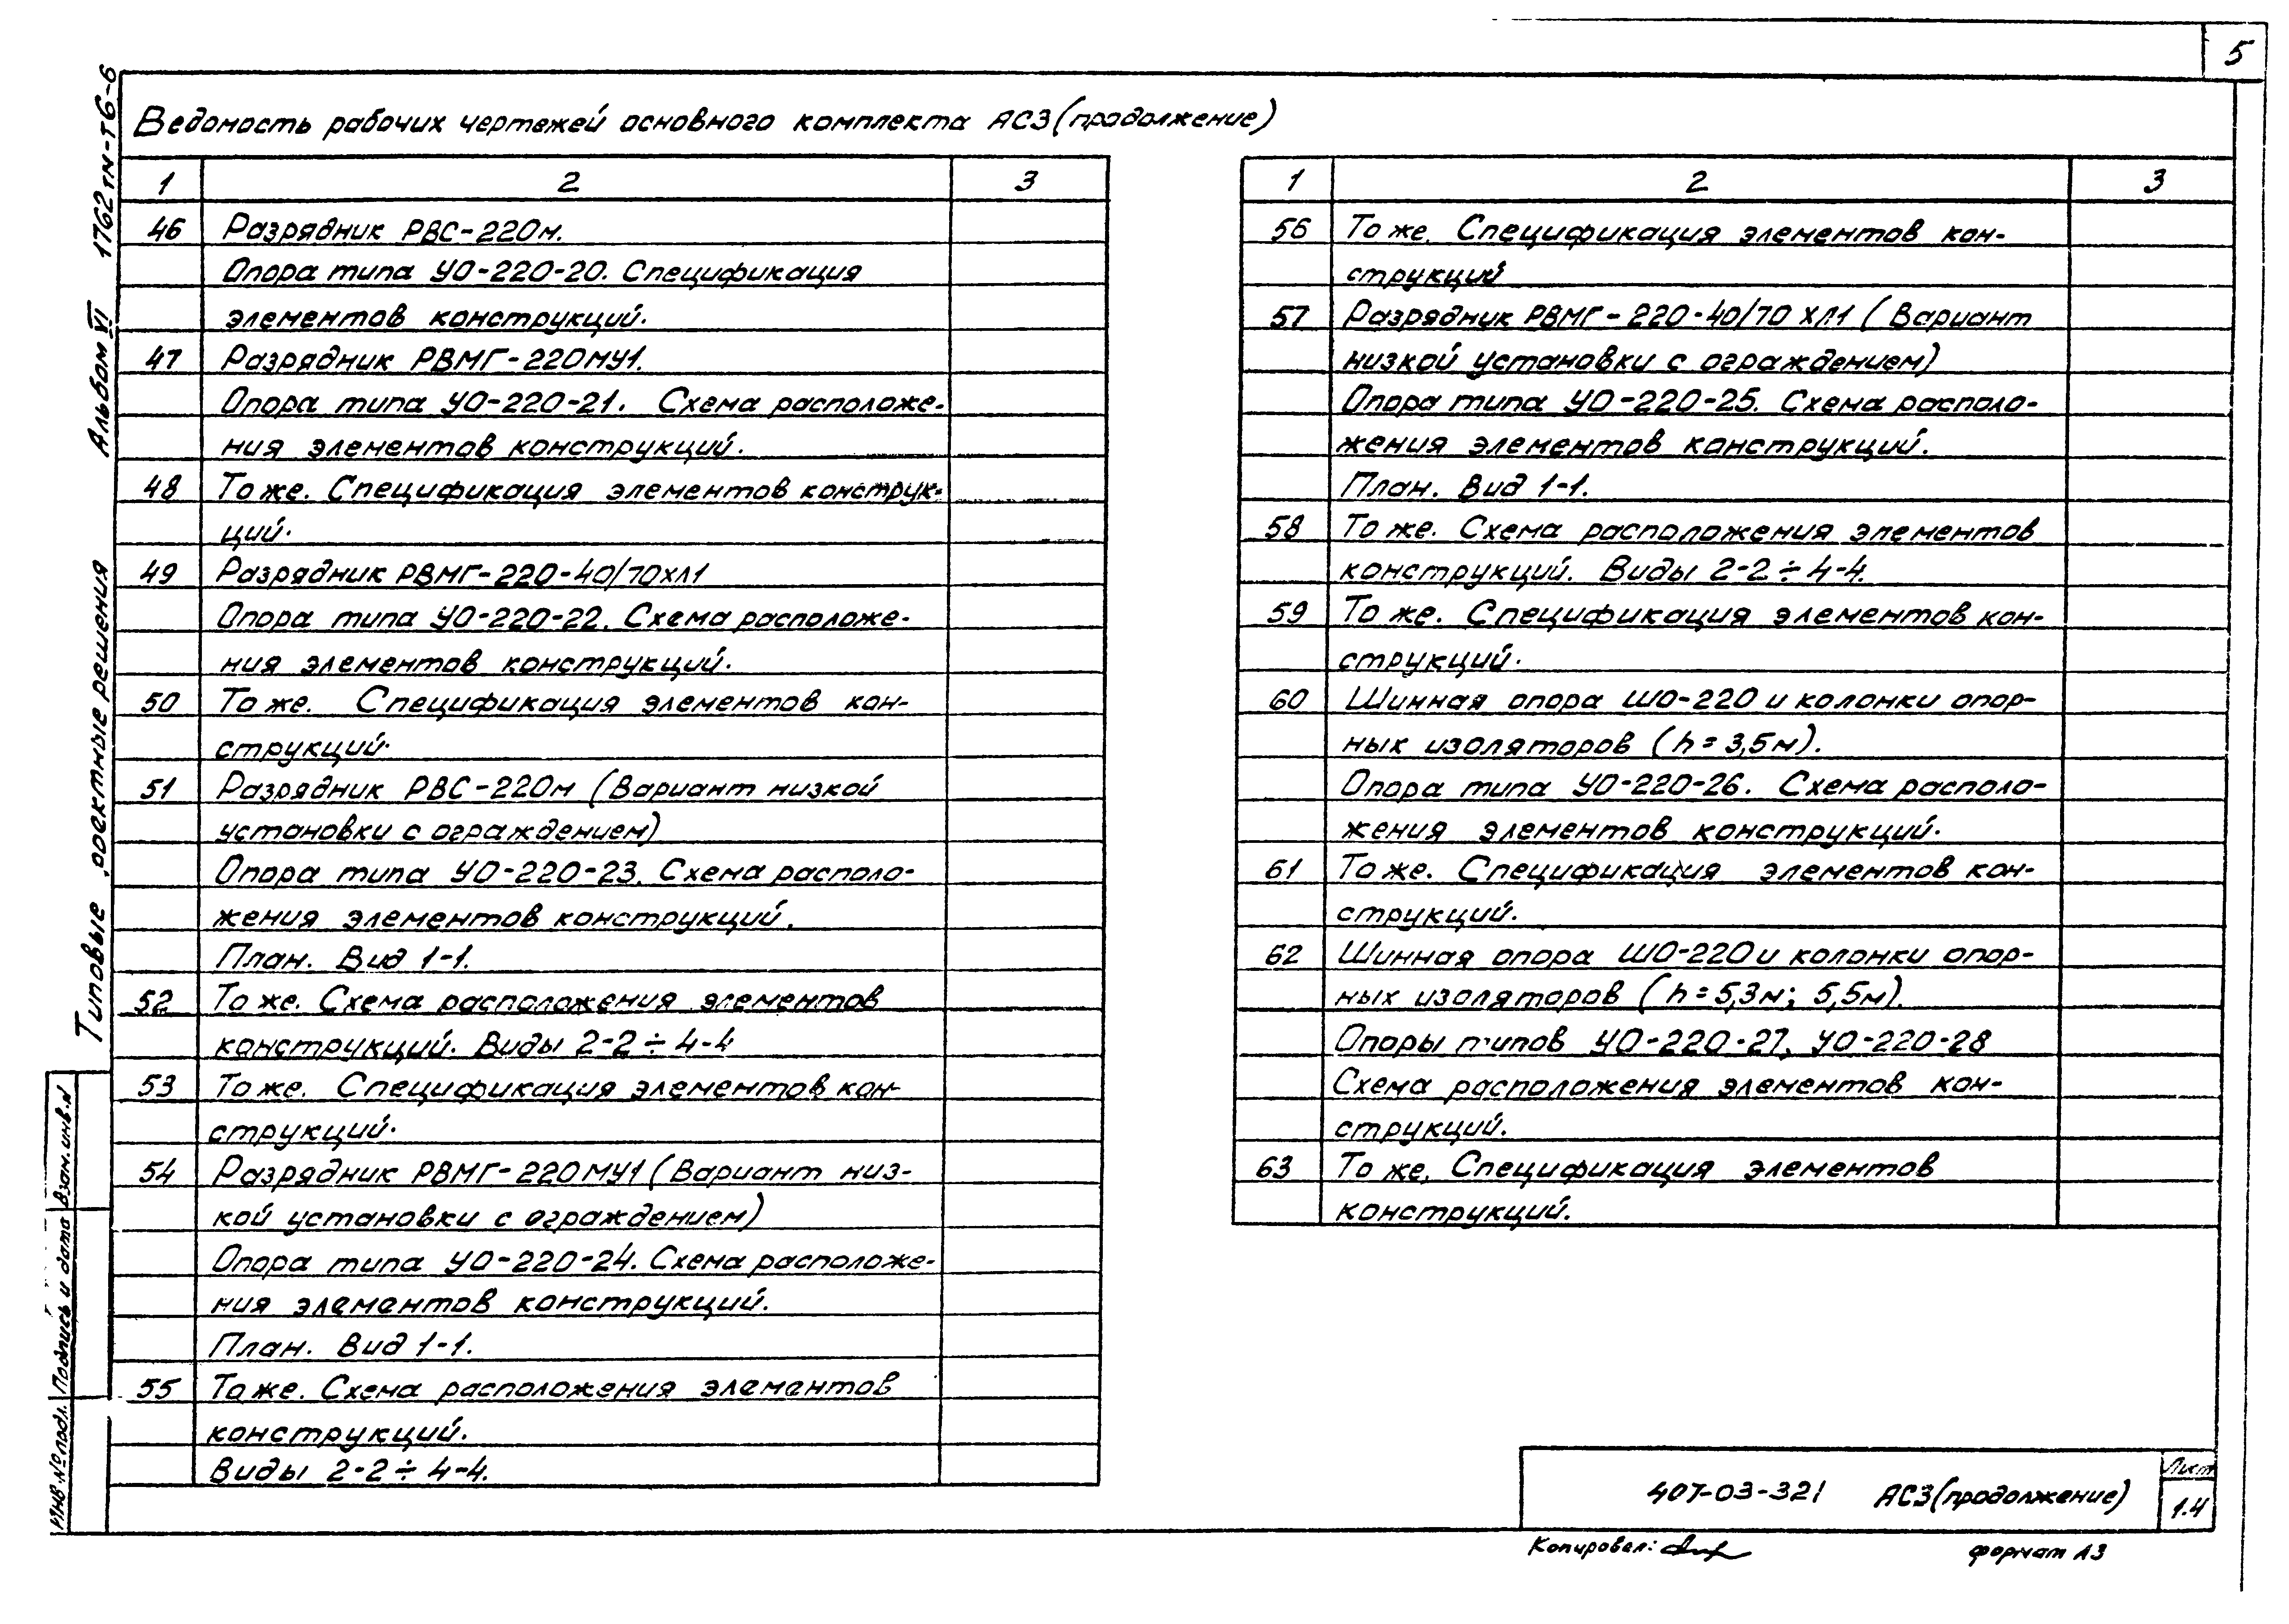 5
Ведомость рабочих чертежей основного комплекта АС3 (продолжение)
1 2 3
46 Разрядник РВС-220м.
Опора типа УО-220-20. Спецификация
элементов конструкций.
47 Разрядник РВМГ-220МУ1.
Опора типа УО-220-21. Схема расположе-
ния элементов конструкций.
48 То же. Спецификация элементов конструк-
ций.
49 Разрядник РВМГ-220-40/70ХЛ1
Опора типа УО-220-22. Схема расположе-
ния элементов конструкций.
50 То же. Спецификация элементов кон-
струкций.
51 Разрядник РВС-220м (Вариант низкой
установки с ограждением)
Опора типа УО-220-23. Схема располо-
жения элементов конструкций.
План. Вид 1-1.
52 То же. Схема расположения элементов
конструкций. Виды 2-2÷4-4
53 То же. Спецификация элементов кон-
струкций.
54 Разрядник РВМГ-220МУ1 (Вариант низ-
кой установки с ограждением)
Опора типа УО-220-24. Схема расположе-
ния элементов конструкций.
План. Вид 1-1.
55 То же. Схема расположения элементов
конструкций.
Виды 2-2÷4-4.
1 2 3
56 То же. Спецификация элементов кон-
струкций
57 Разрядник РВМГ-220-40/70 ХЛ1 (Вариант
низкой установки с ограждением)
Опора типа УО-220-25. Схема располо-
жения элементов конструкций.
План. Вид 1-1.
58 То же. Схема расположения элементов
конструкций. Виды 2-2÷4-4.
59 То же. Спецификация элементов кон-
струкций.
60 Шинная опора ШО-220 и колонки опор-
ных изоляторов (h=3,5м).
Опора типа УО-220-26. Схема располо-
жения элементов конструкций.
61 То же. Спецификация элементов кон-
струкций.
62 Шинная опора ШО-220 и колонки опор-
ных изоляторов (h=5,3м; 5,5м).
Опоры типов УО-220-27, УО-220-28
Схема расположения элементов кон-
струкций.
63 То же. Спецификация элементов
конструкций.
Типовые проектные решения Альбом VI 1762тм-т6-6
Инв.№ подл. Подпись и дата Взам.инв.№
407-03-321 АС3 (продолжение)
Лист
1.4
Копировал:
формат А3